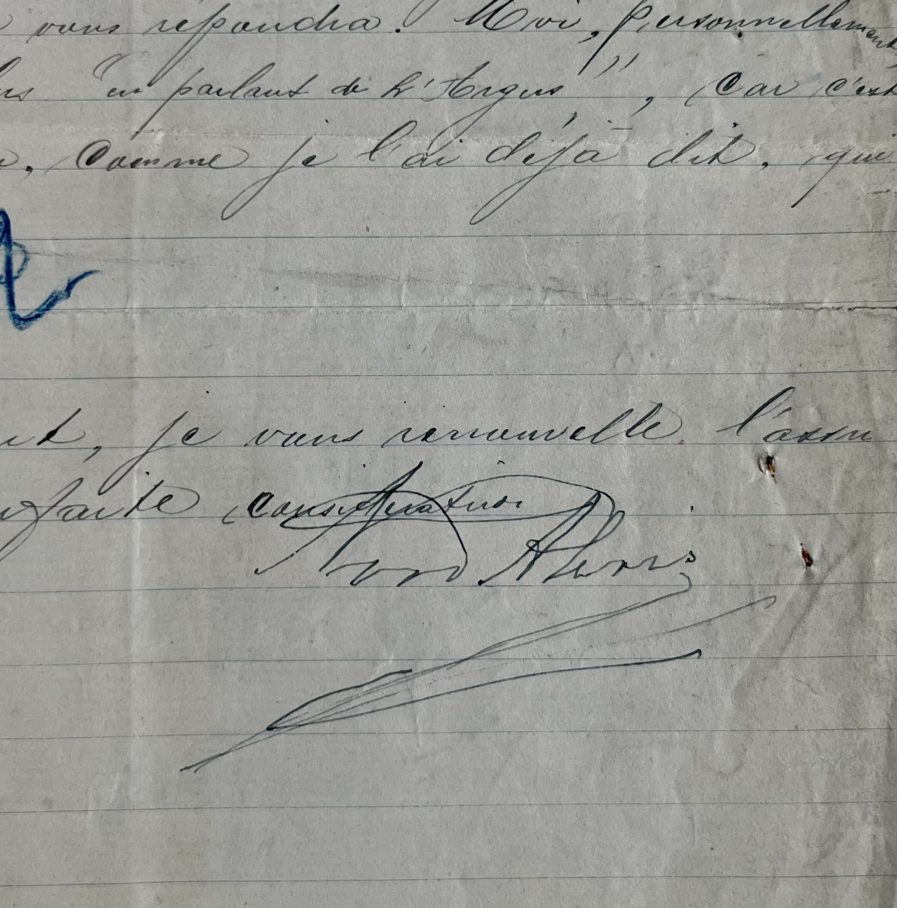 vous répondra. Moi, personnellement,
"en parlant de L'Argus", car c'est
comme je l'ai déjà dit, qui
je vous renouvelle l'assu
faite considération
Nord Alexis